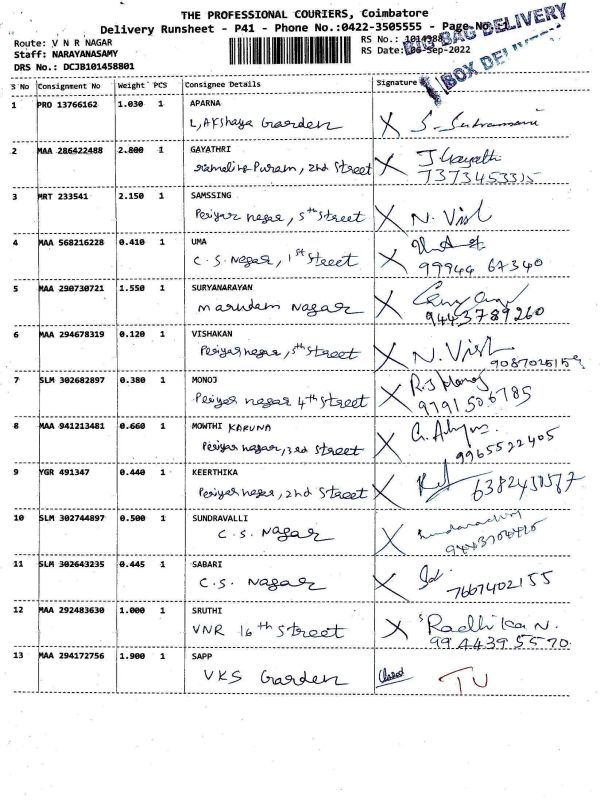 THE PROFESSIONAL COURIERS, Coimbatore
Delivery Runsheet - P41 - Phone No.:0422-3505555 - Page No.:1
Route: V N R NAGAR RS No.: 1014988
Staff: NARAYANASAMY RS Date: 06-Sep-2022
DRS No.: DCJB101458801
BIG BAG DELIVERY
BOX DELIVERY
S No Consignment No Weight PCS Consignee Details Signature
1 PRO 13766162 1.030 1 APARNA
L, Akshaya Garden X
2 MAA 286422488 2.800 1 GAYATHRI
Puram, 2nd Street X J Gayathi
7373453315
3 MRT 233541 2.150 1 SAMSSING
Periyar nagar, 5th Street X N. Vish
4 MAA 568216228 0.410 1 UMA
C.S. Nagar, 1st Street X
99944 67340
5 MAA 290730721 1.550 1 SURYANARAYAN
Marudam Nagar X
9443789260
6 MAA 294678319 0.120 1 VISHAKAN
Periyar nagar, 5th Street X N. Vish
7 SLM 302682897 0.380 1 MONOJ
Periyar nagar 4th Street X
9791506785
8 MAA 941213481 0.660 1 MOWTHI KARUNA
Periyar nagar, 3rd Street X
9965522405
9 YGR 491347 0.440 1 KEERTHIKA
Periyar nagar, 2nd Street X
10 SLM 302744897 0.500 1 SUNDRAVALLI
C.S. Nagar X
11 SLM 302643235 0.445 1 SABARI
C.S. Nagar X
7667402155
12 MAA 292483630 1.000 1 SRUTHI
VNR 16th Street X Radhika N.
9944395570
13 MAA 294172756 1.900 1 SAPP
VKS Garden Closed TU